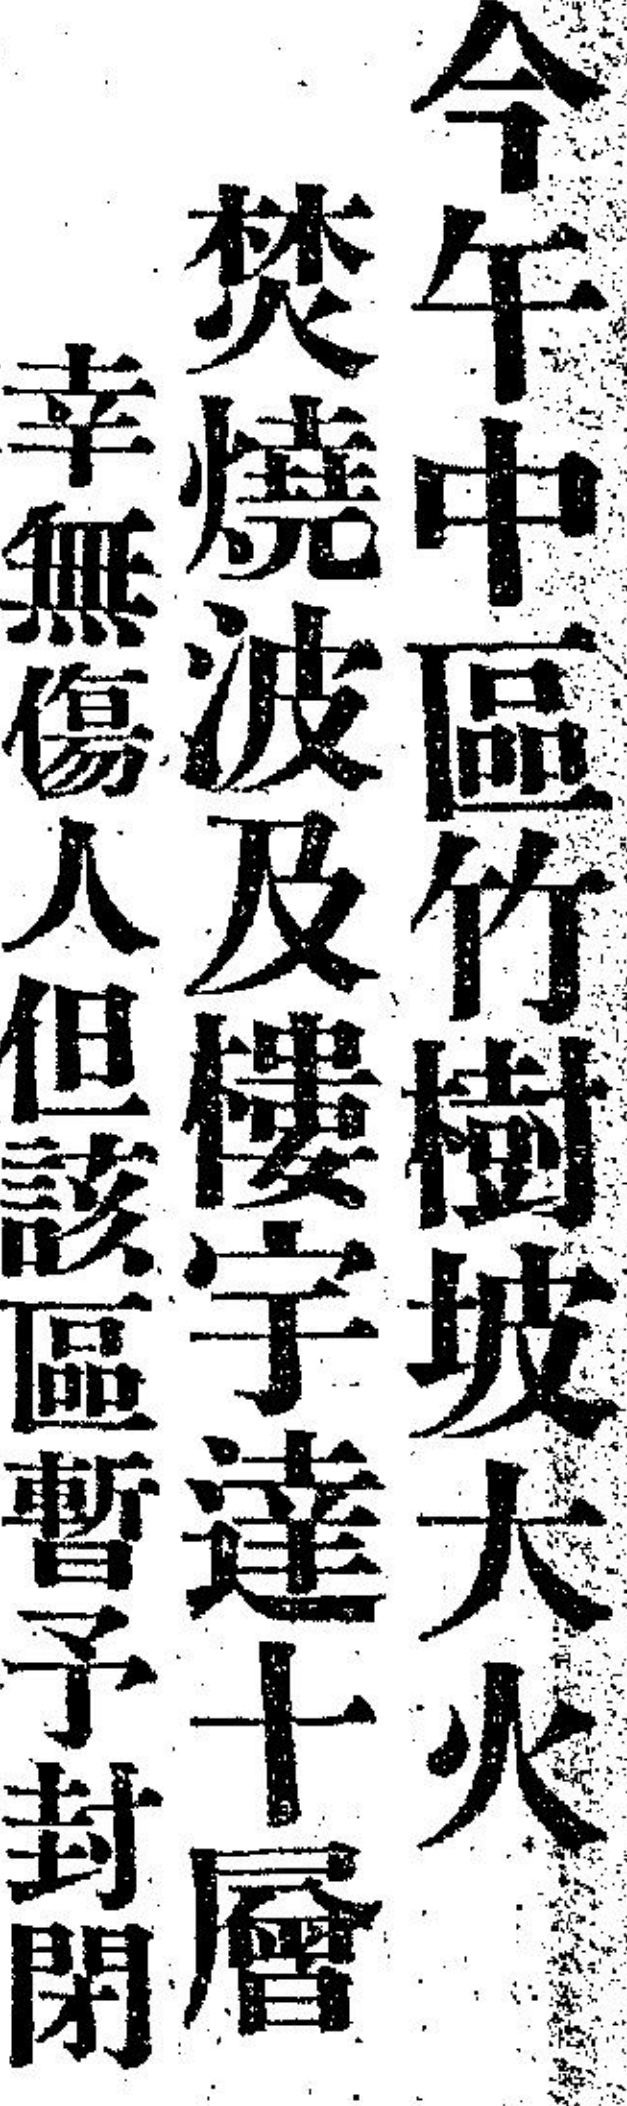 今午中區竹樹坡大火
焚燒波及樓宇達十層
幸無傷人但該區暫予封閉